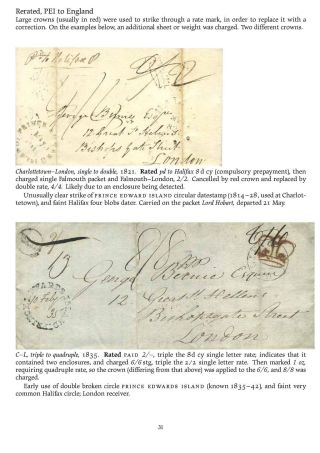 Rerated, PEI to England
Large crowns (usually in red) were used to strike through a rate mark, in order to replace it with a
correction. On the examples below, an additional sheet or weight was charged. Two different crowns.
George Birnie Esqr
12 Great St Helens
Bishops Gate Street
London
Charlottetown–London, single to double, 1821. Rated pd to Halifax 8 d cy (compulsory prepayment), then
charged single Falmouth packet and Falmouth–London, 2/2. Cancelled by red crown and replaced by
double rate, 4/4. Likely due to an enclosure being detected.
Unusually clear strike of PRINCE EDWARD ISLAND circular datestamp (1814–28, used at Charlot-
tetown), and faint Halifax four blobs dater. Carried on the packet Lord Hobart, departed 21 May.
George Birnie Esquire
12 Great St Hellens
Bishopsgate Street
London
C–L, triple to quadruple, 1835. Rated PAID 2/-, triple the 8d cy single letter rate; indicates that it
contained two enclosures, and charged 6/6 stg, triple the 2/2 single letter rate. Then marked 1 oz,
requiring quadruple rate, so the crown (differing from that above) was applied to the 6/6, and 8/8 was
charged.
Early use of double broken circle PRINCE EDWARDS ISLAND (known 1835–42), and faint very
common Halifax circle; London receiver.
31